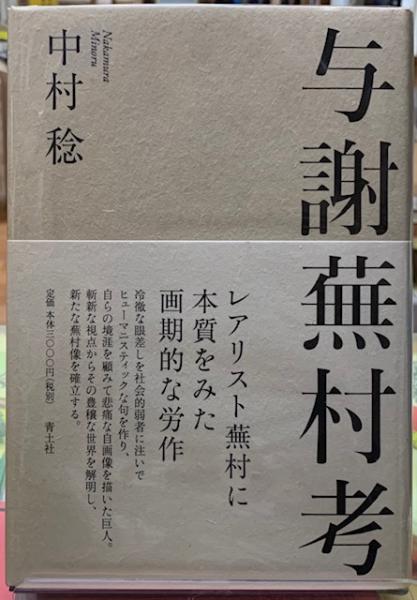 与謝蕪村考
中村 稔
Nakamura
Minoru
レアリスト蕪村に
本質をみた
画期的な労作
冷徹な眼差しを社会的弱者に注いで
ヒューマニスティックな句を作り、
自らの境涯を顧みて悲痛な自画像を描いた巨人。
斬新な視点からその豊穣な世界を解明し、
新たな蕪村像を確立する。
定価 本体三〇〇〇円(税別) 青土社